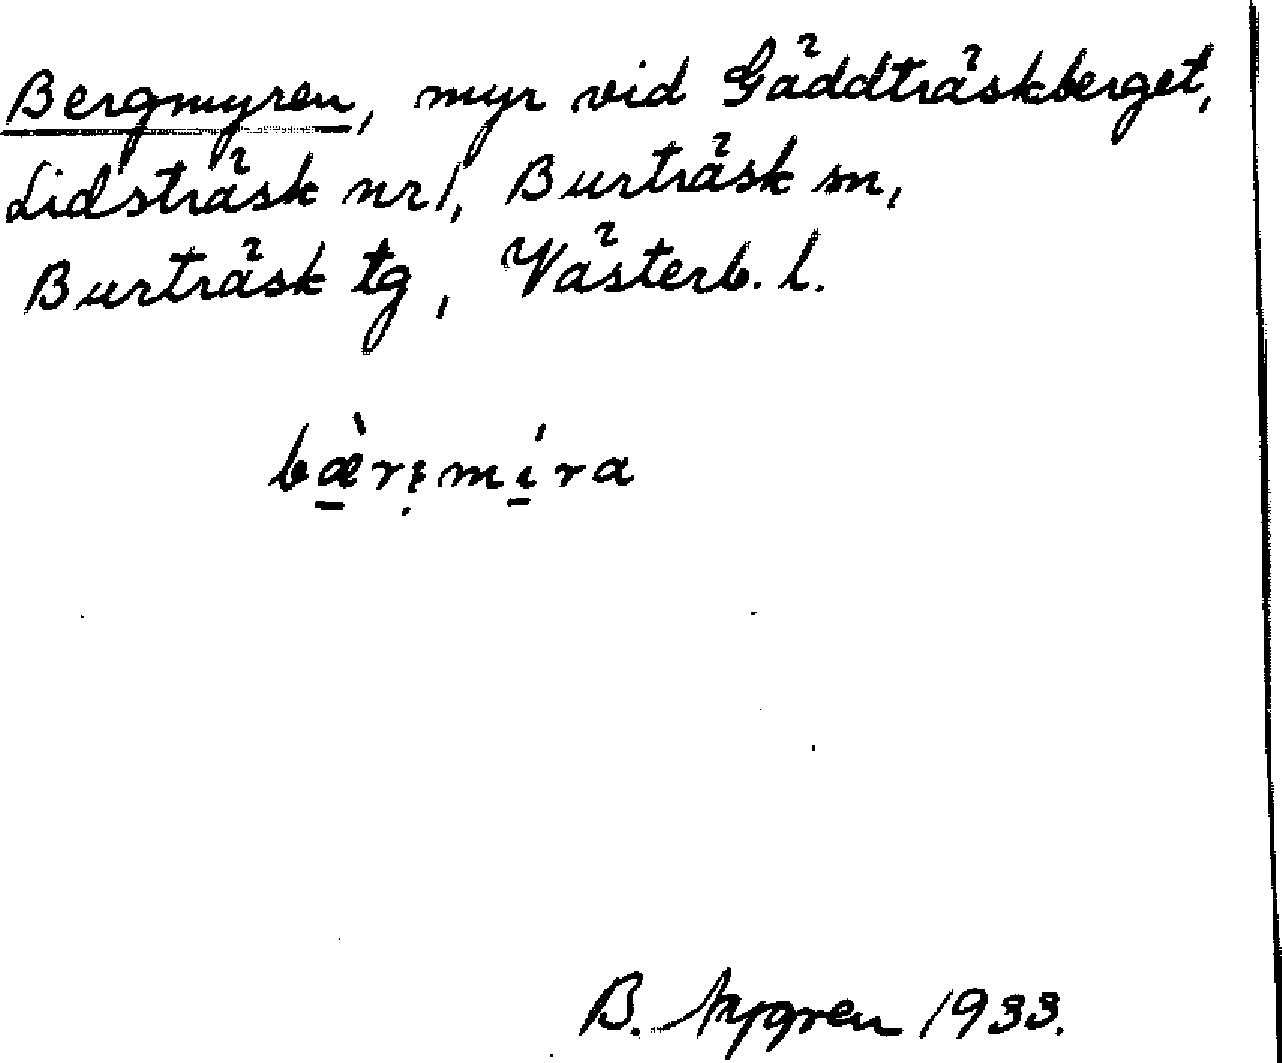 Bergmyren, myr vid Gäddträskberget,
Lidsträsk nr 1, Burträsk sn,
Burträsk tg, Västerb. l.
bæ̀rı̣míra
B. Nygren 1933.